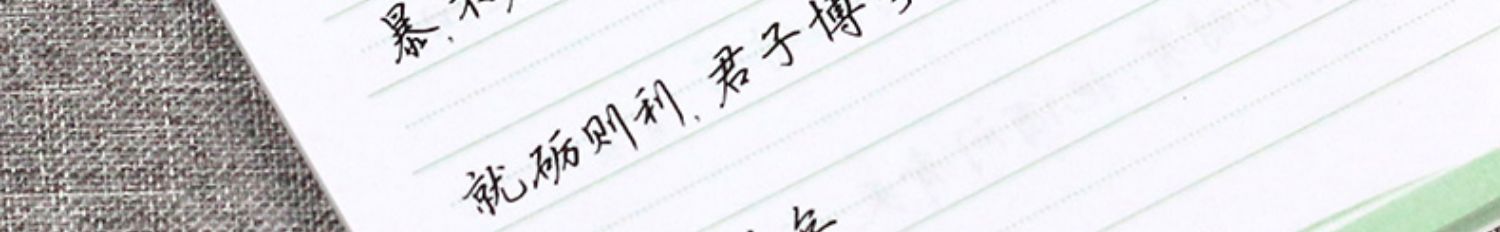 暴,
就砺则利,君子博